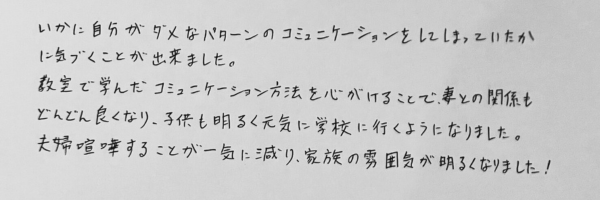 いかに自分がダメなパターンのコミュニケーションをしてしまっていたか
に気づくことが出来ました。
教室で学んだコミュニケーション方法を心がけることで、妻との関係も
どんどん良くなり、子供も明るく元気に学校に行くようになりました。
夫婦喧嘩することが一気に減り、家族の雰囲気が明るくなりました!